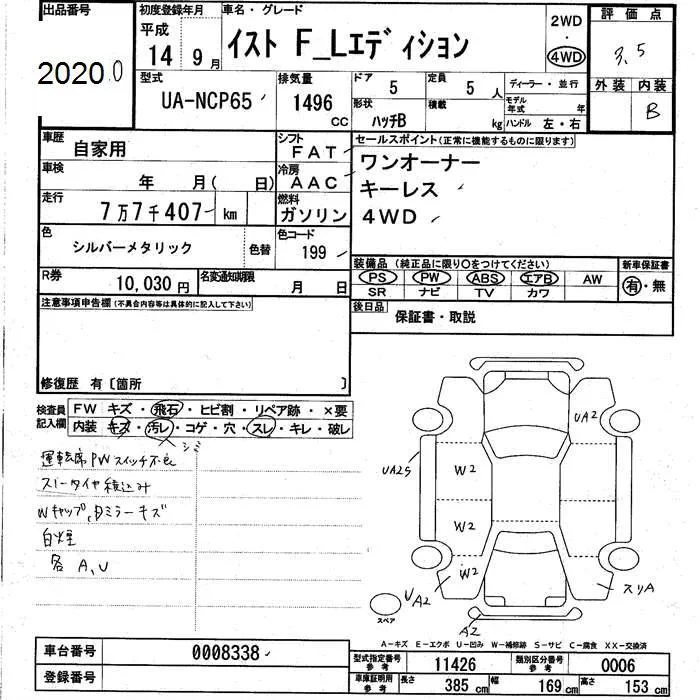 出品番号
20200
初度登録年月
平成
14 9月
車名・グレード
イスト F_Lエディション
2WD
・
4WD
評価点
3.5
外装 内装
B
型式
UA-NCP65
排気量
1496
CC
ドア
5
定員
5 人
形状
ハッチB
積載
kg
ディーラー・並行
モデル年式 年
ハンドル 左・右
車歴
自家用
シフト
FAT
車検
年 月(日)
冷房
AAC
走行
7万7千407 km
燃料
ガソリン
色
シルバーメタリック
色替
色コード
199
R券
10,030 円
名変通知期限
月 日
セールスポイント(正常に機能するものに限ります)
ワンオーナー
キーレス
4WD
装備品(純正品に限り〇をつけてください)
PS PW ABS エアB AW
SR ナビ TV カワ
新車保証書
有・無
後日品
保証書・取説
注意事項申告欄(不具合内容等は具体的に記入して下さい)
修復歴 有〔箇所 〕
検査員記入欄
FW キズ・飛石・ヒビ割・リペア跡・×要
内装・キズ・汚レ・コゲ・穴・スレ・キレ・破レ
シミ
運転席PWスイッチ不良
スノータイヤ積込み
Wキャップ、Dミラーキズ
白煙
各 A、U
UA2
UA2S
W2
W2
W2
UA2
スリA
A2
スペア
A-キズ E-エクボ U-凹み W-補修跡 S-サビ C-腐食 XX-交換済
車台番号
0008338
登録番号
型式指定番号参考
11426
類別区分番号参考
0006
車庫証明用参考
長さ 385 cm
幅 169 cm
高さ 153 cm